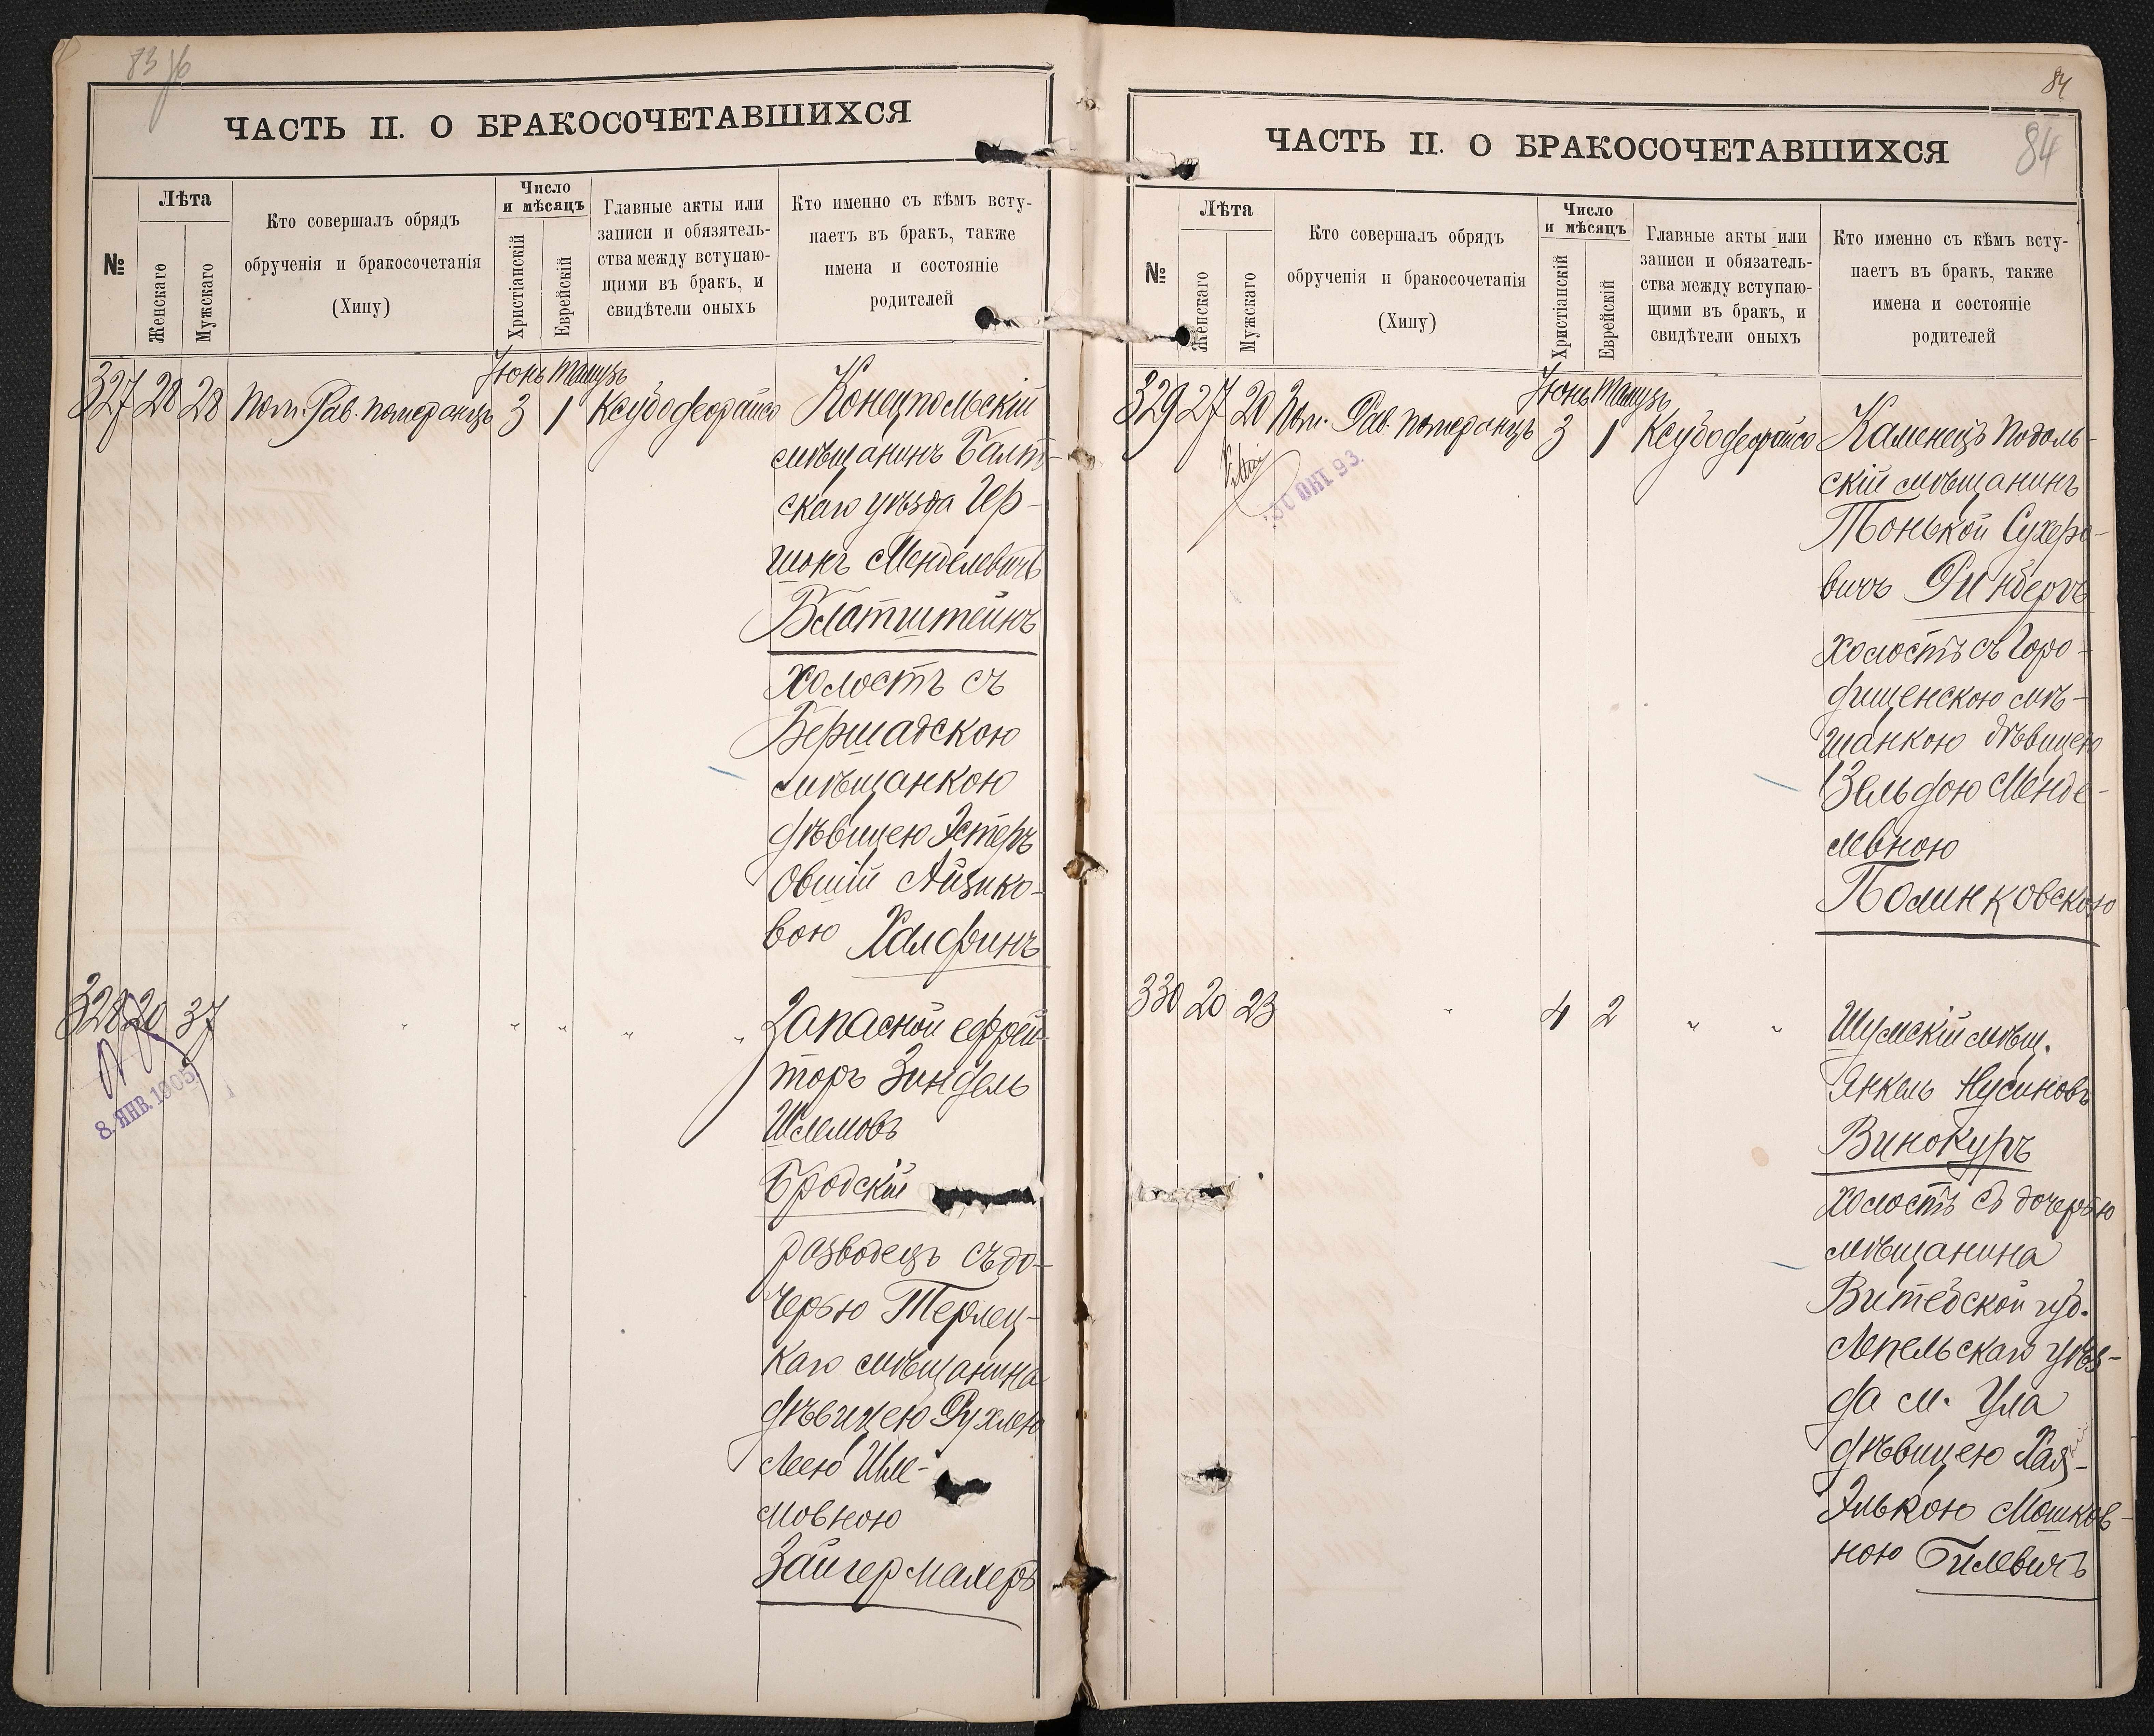 83 об
ЧАСТЬ II. О БРАКОСОЧЕТАВШИХСЯ
№
Лѣта
Женскаго
Мужскаго
Кто совершалъ обрядъ
обрученія и бракосочетанія
(Хипу)
Число
и мѣсяцъ
Христіанскій
Еврейскій
Главные акты или
записи и обязатель-
ства между вступаю-
щими въ бракъ, и
свидѣтели оныхъ
Кто именно съ кѣмъ всту-
паетъ въ бракъ, также
имена и состояніе
родителей
Іюнь Тамузъ
327 28 28 Пом. Рав. Померанцъ 3 1 Ксубо деорайсо
Конецпольскій
мѣщанинъ Балт-
скаго уѣзда Гер-
шонъ Менделевичъ
Блатштейнъ
холостъ съ
Бершадскою
мѣщанкою
дѣвицею Эстеръ
Овшій Айзико-
вою Халфинъ
328 20 37 " " " " "
8. ЯНВ. 1905
Запасной ефрей-
торъ Зиндель
Шлемовъ
Бродскій
разводецъ съ до-
черью Терлец-
каго мѣщанина
дѣвицею Рухлею
Леею Шле-
мовною
Зайгермахеръ
84
84
ЧАСТЬ II. О БРАКОСОЧЕТАВШИХСЯ
№
Лѣта
Женскаго
Мужскаго
Кто совершалъ обрядъ
обрученія и бракосочетанія
(Хипу)
Число
и мѣсяцъ
Христіанскій
Еврейскій
Главные акты или
записи и обязатель-
ства между вступаю-
щими въ бракъ, и
свидѣтели оныхъ
Кто именно съ кѣмъ всту-
паетъ въ бракъ, также
имена и состояніе
родителей
Іюнь Тамузъ
329 27 20 Пом. Рав. Померанцъ 3 1 Ксубо деорайсо
ОКТ 93
Каменецъ Подоль-
скій мѣщанинъ
Тонькой Сухеро-
вичъ Ринбергъ
холостъ съ Горо-
дищенскою мѣ-
щанкою дѣвицею
Зельдою Менде-
левною
Полинковскою
330 20 23 " 4 2 " "
Шумскій мѣщ.
Янкель Нусиновъ
Винокуръ
холостъ съ дочерью
мѣщанина
Витебской губ.
Лепельскаго уѣз-
да м. Ула
дѣвицею Хая-
Элькою Мошков-
ною Гилевичъ